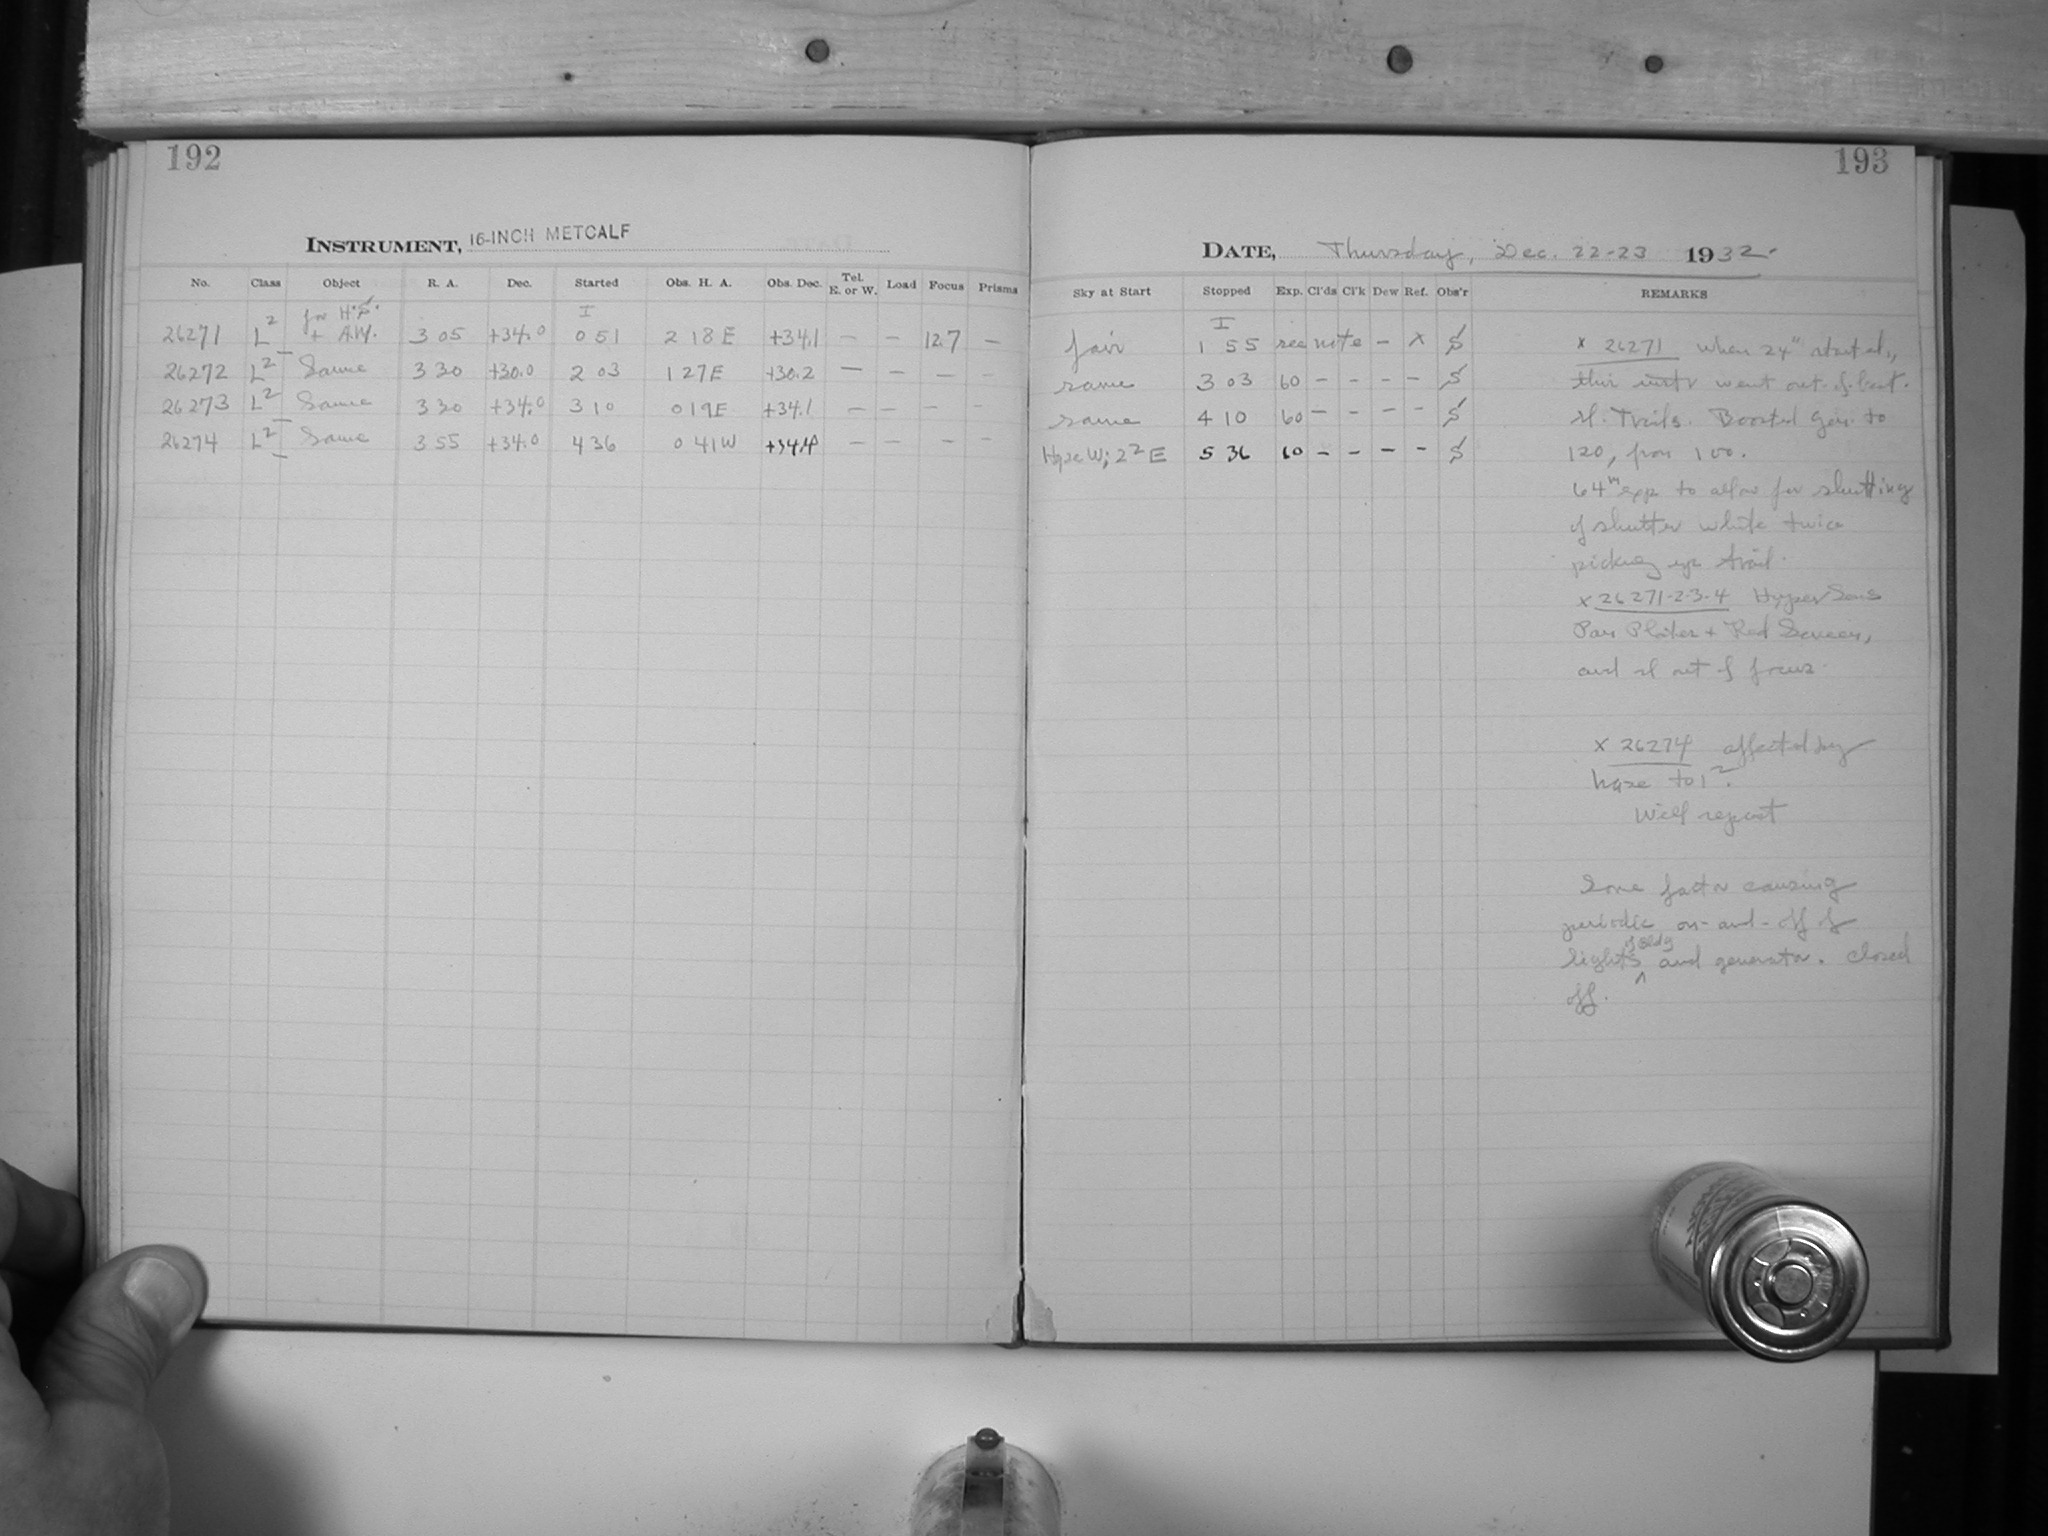 192
INSTRUMENT, 16-INCH METCALF
No. Class Object R. A. Dec. Started Obs. H. A. Obs. Dec. Tel. E. or W. Load Focus Prisms
for H.S.
26271 L² + A.W. 3 05 +34.0 I 0 51 2 18 E +34.1 — — 12.7 —
26272 L² Same 3 30 +30.0 2 03 1 27 E +30.2 — — — —
26273 L² Same 3 30 +34.0 3 10 0 19 E +34.1 — — — —
26274 L² Same 3 55 +34.0 4 36 0 41 W +34.4 — — — —
193
DATE, Thursday, Dec. 22-23 1932.
Sky at Start Stopped Exp. Cl'ds Cl'k Dew Ref. Obs'r REMARKS
fair I 1 55 see note — x S
same 3 03 60 — — — — S
same 4 10 60 — — — — S
Haze W; 2² E 5 36 60 — — — — S
x 26271 When 24" started,
this instr went out-of-beat.
sl. Trails. Boosted Gen. to
120, from 100.
64ᵐ exp to allow for shutting
of shutter while twice
picking up trail.
x 26271-2-3-4 Hyper Sens
Pan Plates + Red Screen,
and sl out of focus.
x 26274 affected by
haze to 1².
Will repeat
Some factor causing
periodic on-and-off of
lights of Bldg and generator. Closed
off.